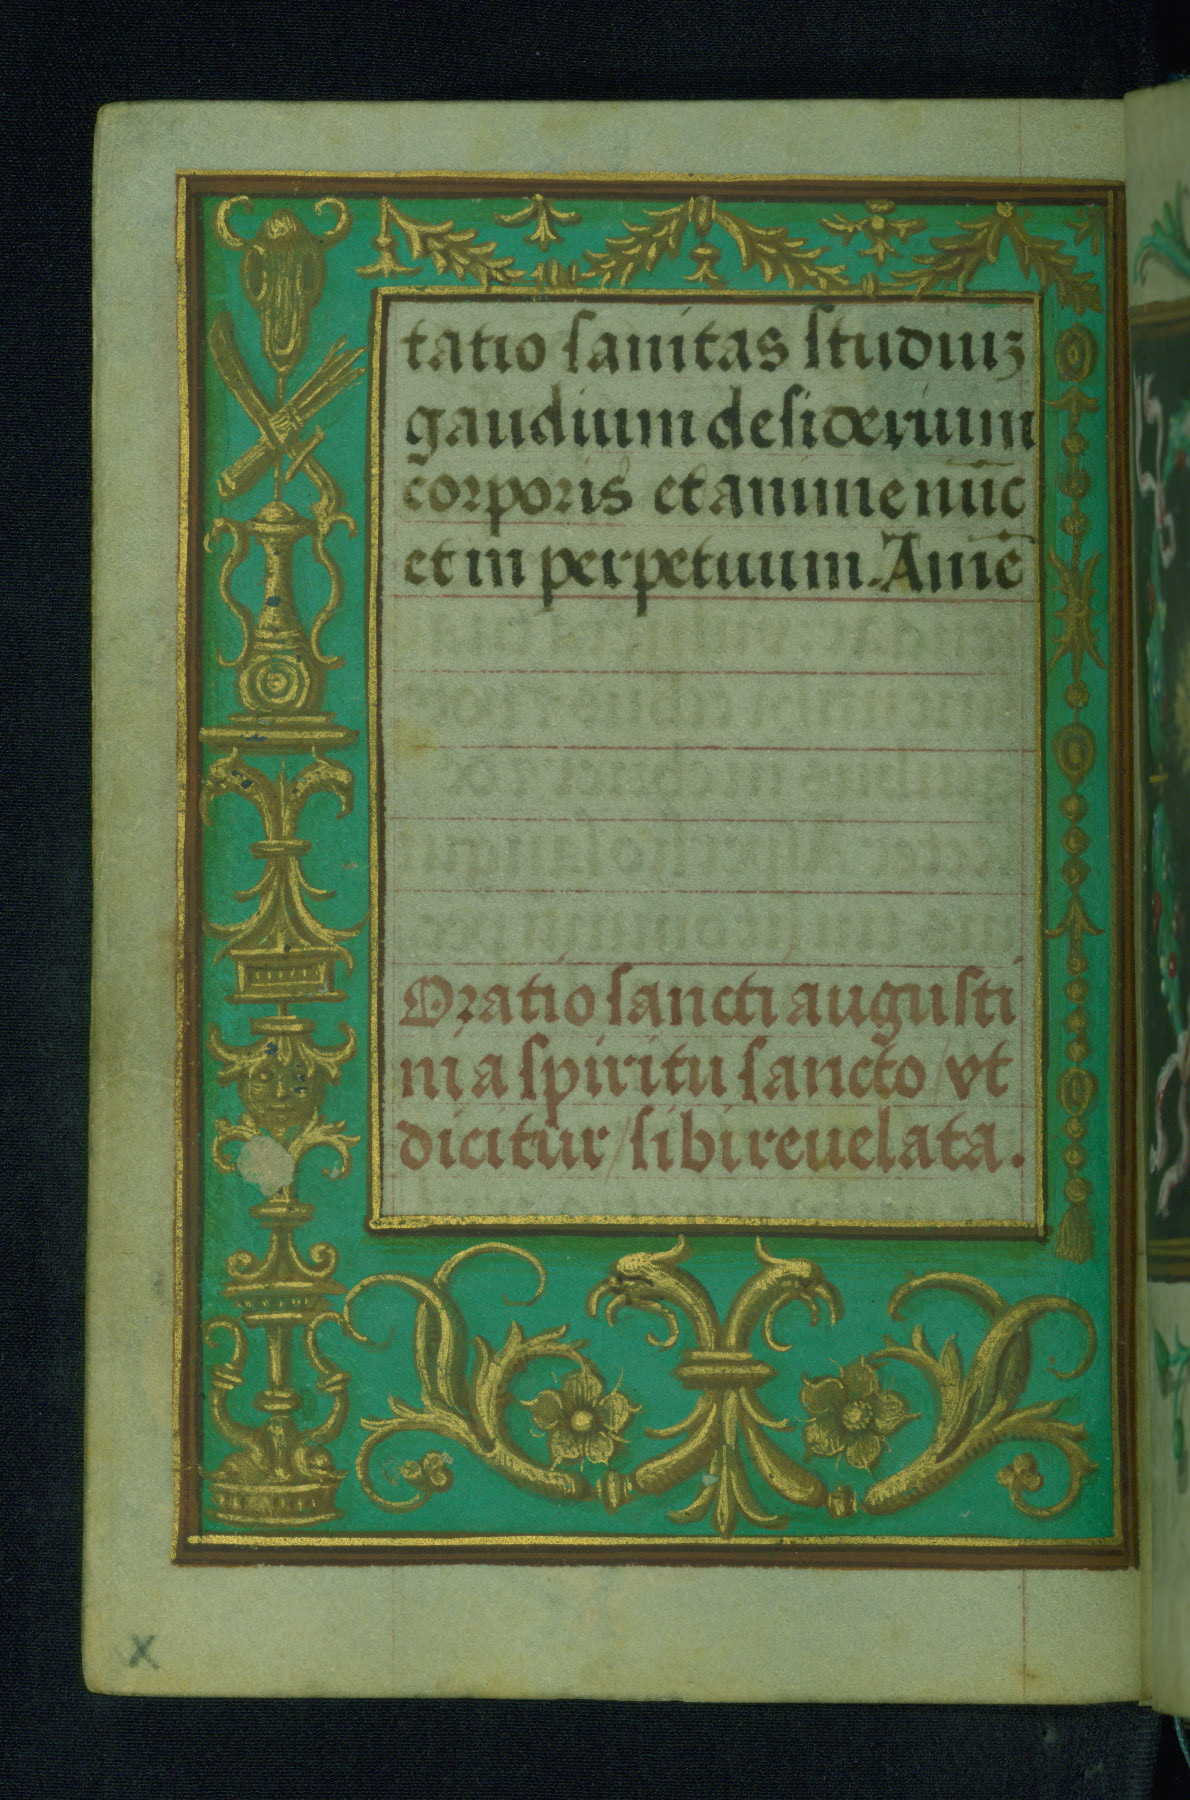 tatio sanitas studiuʒ
gaudium desiderium
corporis et anime nūc
et in perpetuum. Amē
Oratio sancti augusti
ni a spiritu sancto / vt
dicitur / sibi reuelata.
x